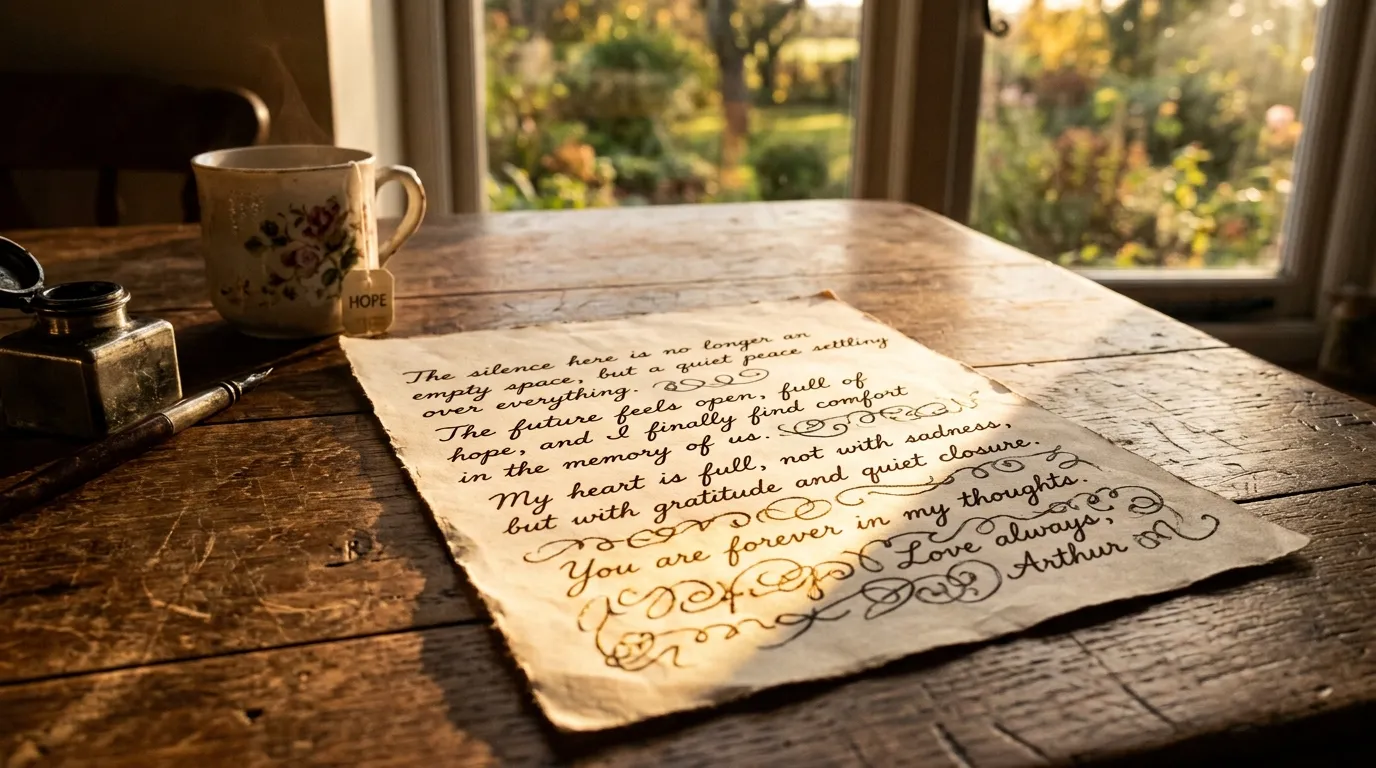 HOPE
The silence here is no longer an
empty space, but a quiet peace settling
over everything.
The future feels open, full of
hope, and I finally find comfort
in the memory of us.
My heart is full, not with sadness,
but with gratitude and quiet closure.
You are forever in my thoughts.
Love always,
Arthur